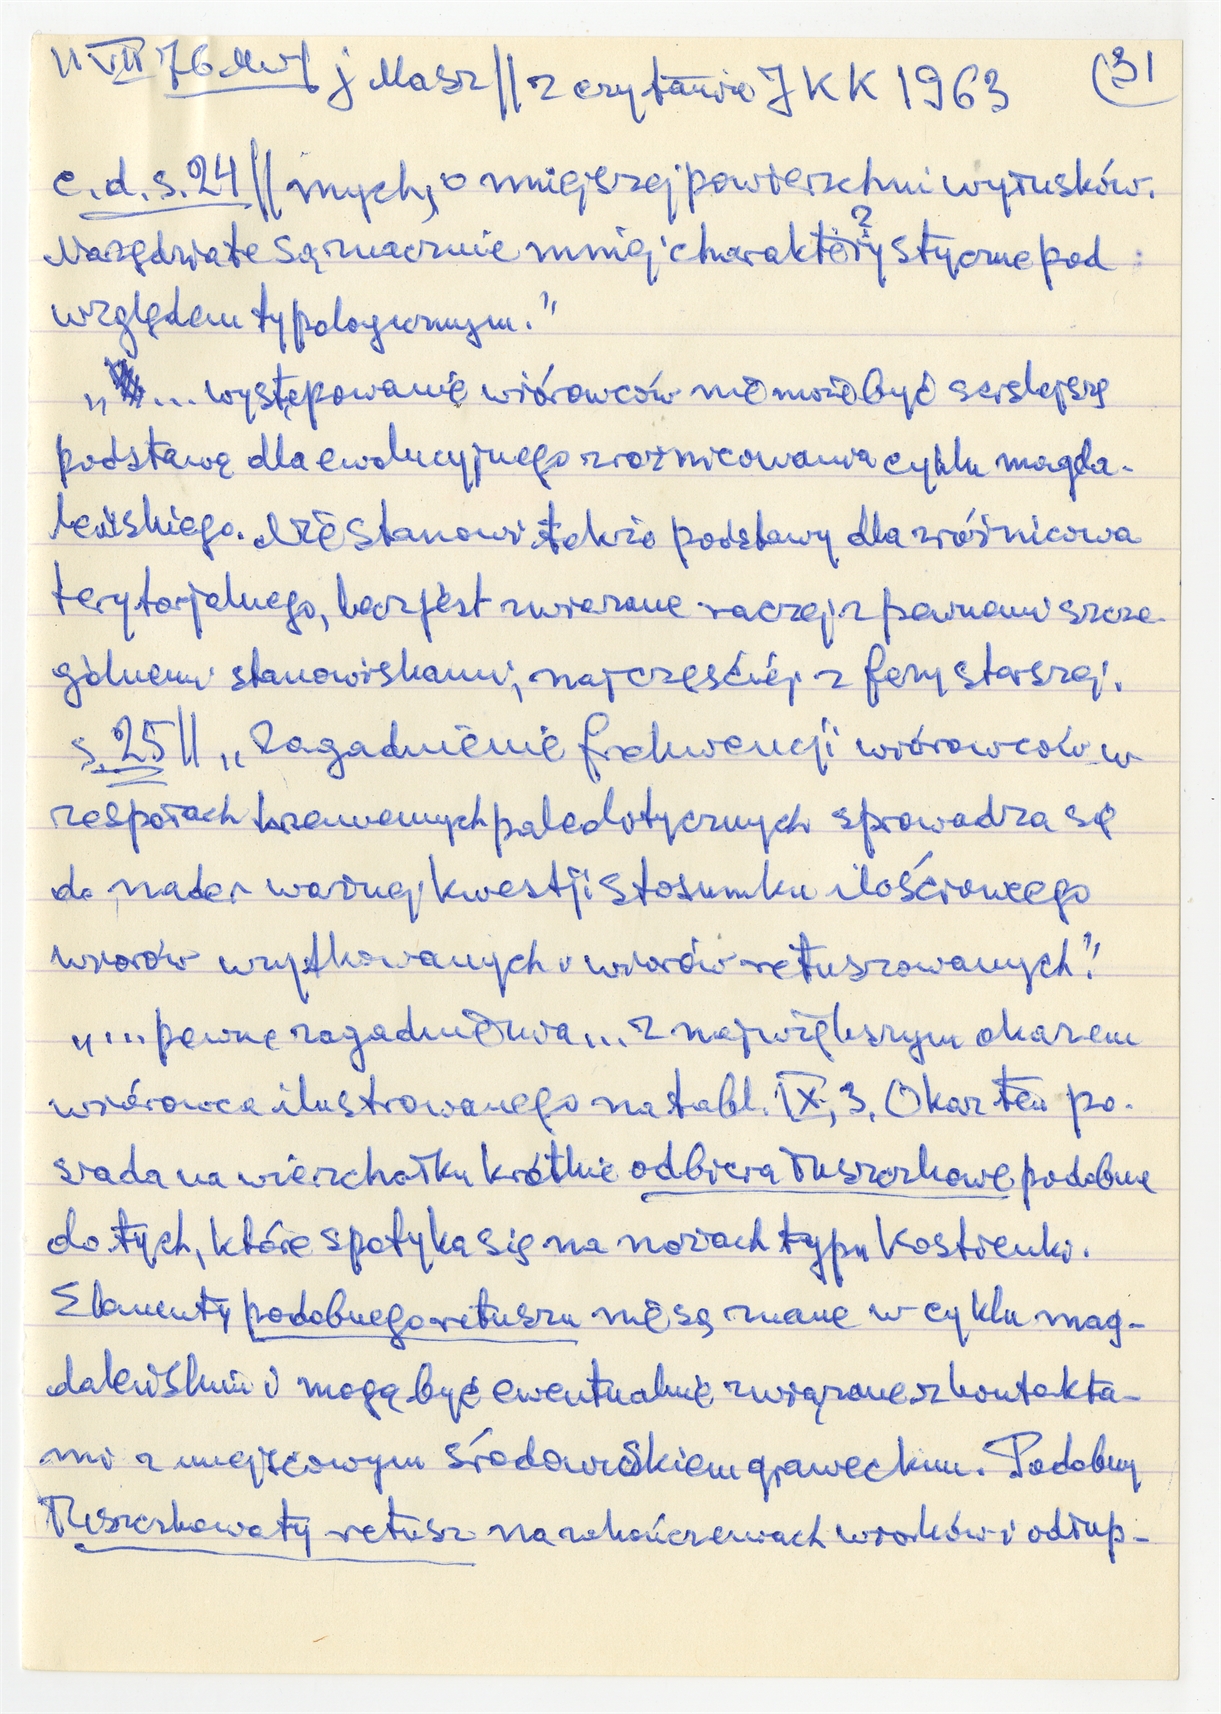 11 VII 76 MWł j Masz || z czytania JKK 1963 (31
c.d.s. 24 || mych, o mniejszej powierzchni wyłusków.
Narzędzia te są znacznie mniej charakterystyczne pod
?
względem typologicznym."
„... występowanie wiórowców nie może być ściślejszą
podstawą dla ewolucyjnego zróżnicowania cyklu magda-
leńskiego. Nie stanowi także podstawy dla zróżnicowa
terytorjalnego, lecz jest związane raczej z pewnemi szcze-
gólnemi stanowiskami, najczęściej z fazy starszej.
s. 25 || „Zagadnienie frekwencji wiórowców w
zespołach krzemiennych paleolitycznych sprowadza się
do nader ważnej kwestji stosunku ilościowego
wiórów użytkowanych i wiórów retuszowanych."
„... pewne zagadnienia... z największym okazem
wiórowca ilustrowanego na tabl. IX, 3. Okaz ten po-
siada na wierzchołku krótkie odbicia łuszczkowe podobne
do tych, które spotyka się na nożach typu Kostienki.
Elementy podobnego retuszu nie są znane w cyklu mag-
daleńskim i mogą być ewentualnie związane z kontakta-
mi z miejscowym środowiskiem graweckim. Podobny
łuszczkowaty retusz na zakończeniach wiórków i odłup-